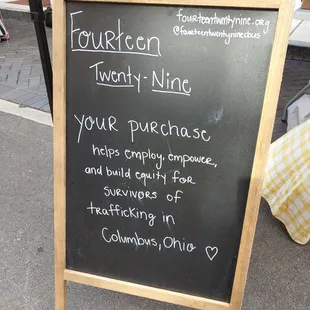 fourteentwentynine.org
@fourteentwentyninecbus
Fourteen
Twenty-Nine
your purchase
helps employ, empower,
and build equity for
survivors of
trafficking in
Columbus, Ohio ♡